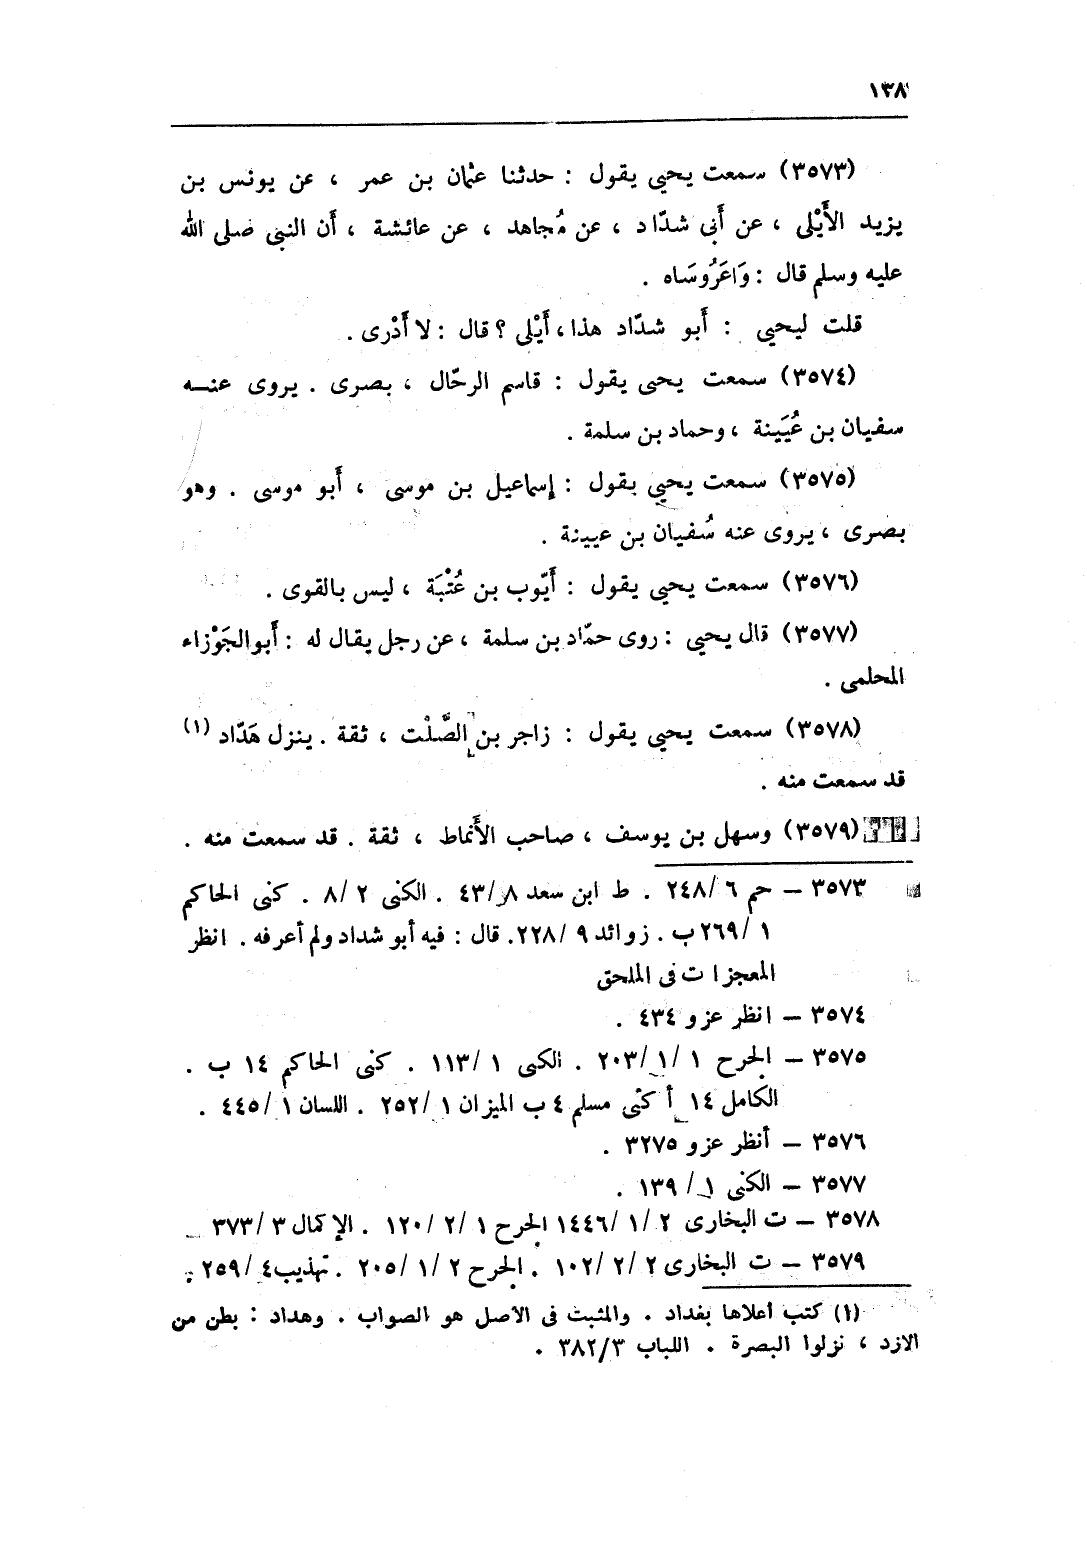 ١٣٨
(٣٥٧٣) سمعت يحيى يقول : حدثنا عثمان بن عمر ، عن يونس بن
يزيد الأَيْلى ، عن أَبى شدّاد ، عن مُجاهد ، عن عائشة ، أَن النبى صلى الله
عليه وسلم قال : وَاعَرُوسَاه .
قلت ليحيى : أَبو شدّاد هذا ، أَيْلى ؟ قال : لا أَدْرى .
(٣٥٧٤) سمعت يحيى يقول : قاسم الرحّال ، بصرى . يروى عنه
سفيان بن عُيَينة ، وحماد بن سلمة .
(٣٥٧٥) سمعت يحيى يقول : إسماعيل بن موسى ، أَبو موسى . وهو
بصرى ، يروى عنه سُفيان بن عيينة .
(٣٥٧٦) سمعت يحيى يقول : أَيّوب بن عُتْبَة ، ليس بالقوى .
(٣٥٧٧) قال يحيى : روى حمّاد بن سلمة ، عن رجل يقال له : أَبو الجَوْزاء
المحلمى .
(٣٥٧٨) سمعت يحيى يقول : زاجر بن الصَّلْت ، ثقة . ينزل هَدّاد (١)
قد سمعت منه .
(٣٥٧٩) وسهل بن يوسف ، صاحب الأَنماط ، ثقة . قد سمعت منه .
٣٥٧٣ – حم ٦ /٢٤٨ . ط ابن سعد ٨ /٤٣ . الكنى ٢ /٨ . كنى الحاكم
١ /٢٦٩ب . زوائد ٩ /٢٢٨. قال : فيه أبو شداد ولم أعرفه . انظر
المعجزات فى الملحق
٣٥٧٤ – انظر عزو ٤٣٤ .
٣٥٧٥ – الجرح ١ /١ /٢٠٣ . الكنى ١ /١١٣ . كنى الحاكم ١٤ ب .
الكامل ١٤ أ كنى مسلم ٤ ب الميزان ١ /٢٥٢ . اللسان ١ /٤٤٥ .
٣٥٧٦ – أنظر عزو ٣٢٧٥ .
٣٥٧٧ – الكنى ١ /١٣٩ .
٣٥٧٨ – ت البخارى ٢ /١ /١٤٤٦ الجرح ١ /٢ /١٢٠ . الإكمال ٣ /٣٧٣
٣٥٧٩ – ت البخارى ٢ /٢ /١٠٢ . الجرح ٢ /١ /٢٠٥ . تهذيب ٤ /٢٥٩ .
(١) كتب أعلاها بغداد . والمثبت فى الأصل هو الصواب . وهداد : بطن من
الازد ، نزلوا البصرة . اللباب ٣/٣٨٢ .